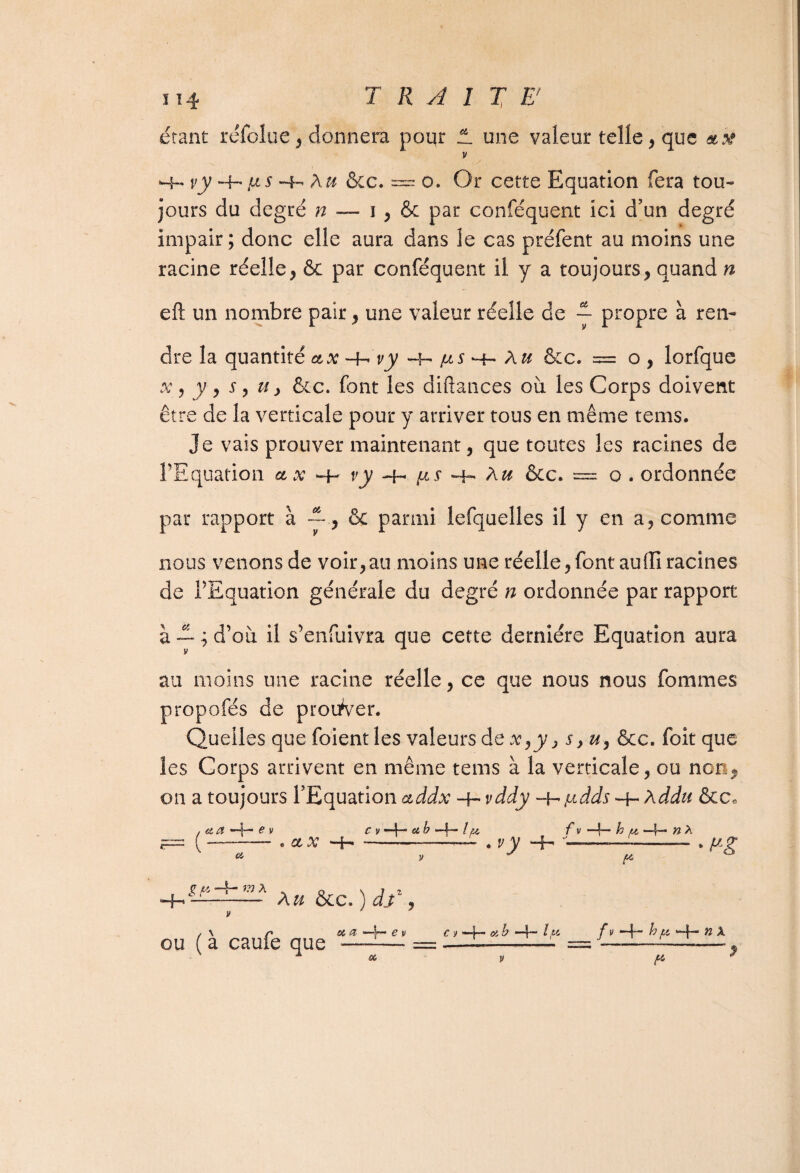 114 TRAITE'
étant réfolue, donnera pour α/ν une valeur telle, que αx
+ νy + μs + λu &c. = o. Or cette Equation fera tou-
jours du degré n — 1, & par conféquent ici d'un degré
impair; donc elle aura dans le cas préfent au moins une
racine réelle, & par conféquent il y a toujours, quand n
eft un nombre pair, une valeur réelle de α/ν propre à ren-
dre la quantité αx + νy + μs + λu &c. = o, lorfque
x, y, s, u, &c. font les diftances où les Corps doivent
être de la verticale pour y arriver tous en même tems.
Je vais prouver maintenant, que toutes les racines de
l'Equation αx + νy + μs + λu &c. = o. ordonnée
par rapport à α/ν, & parmi lefquelles il y en a, comme
nous venons de voir, au moins une réelle, font auffi racines
de l'Equation générale du degré n ordonnée par rapport
à α/ν; d'où il s'enfuivra que cette derniére Equation aura
au moins une racine réelle, ce que nous nous fommes
propofés de prouver.
Quelles que foient les valeurs de x, y, s, u, &c. foit que
les Corps arrivent en même tems à la verticale, ou non,
on a toujours l'Equation αddx + νddy + μdds + λddu &c.
= ((αa + eν)/α . αx + (cν + αb + lμ)/ν . νy + (fν + hμ + nλ)/μ . μg
+ (gμ + mλ)/ν λu &c.) dt², 
ou (à caufe que (αa + eν)/α = (cν + αb + lμ)/ν = (fν + hμ + nλ)/μ,